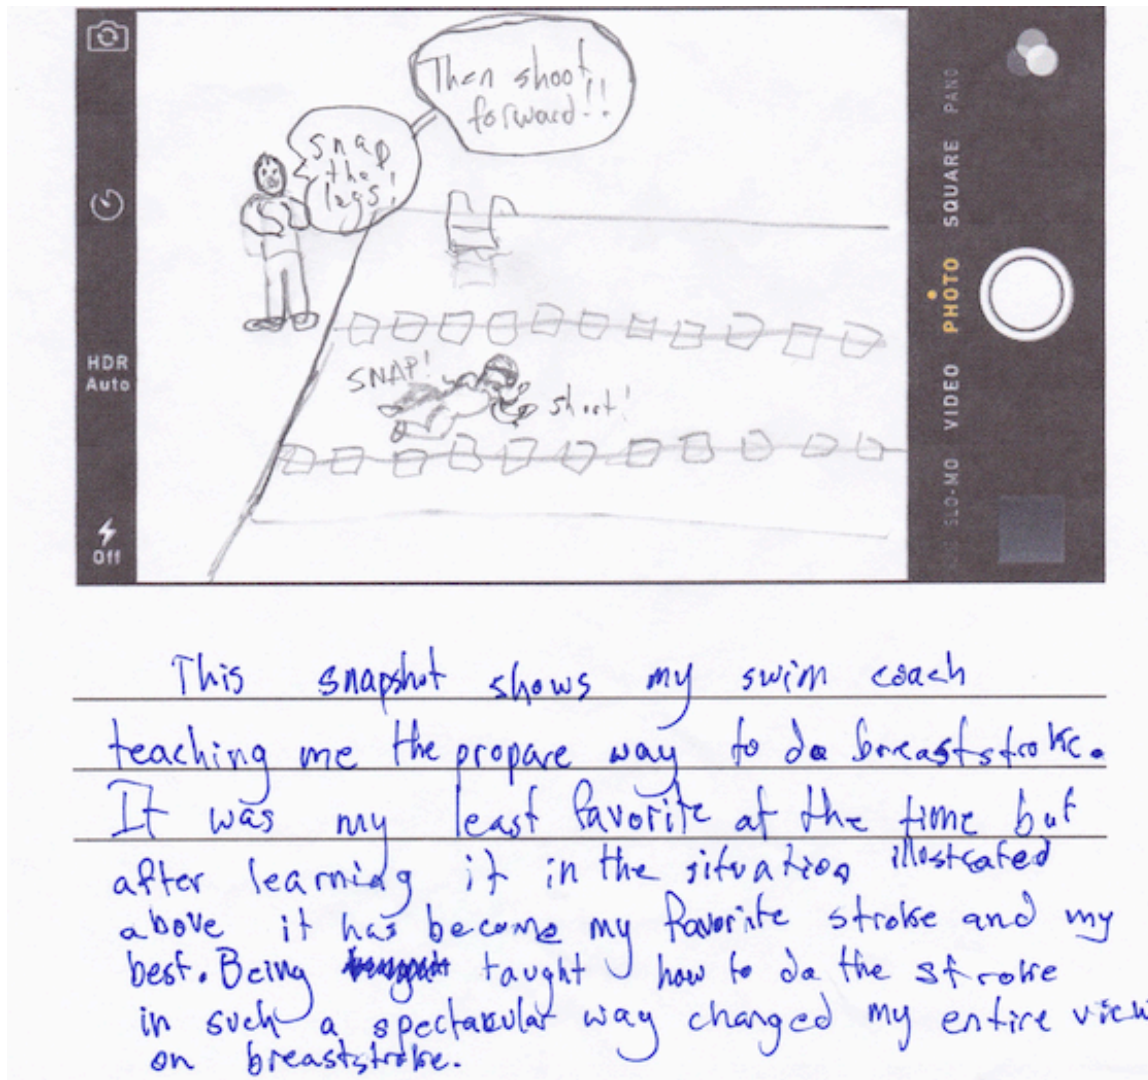 Then shoot
forward!!
Snap
the
legs!
HDR
Auto
SNAP!
shoot!
Off
SLO-MO VIDEO PHOTO SQUARE PANO
This snapshot shows my swim coach
teaching me the propare way to do breaststroke.
It was my least favorite at the time but
after learning it in the situation illustrated
above it has become my favorite stroke and my
best. Being taught how to do the stroke
in such a spectakular way changed my entire view
on breaststroke.